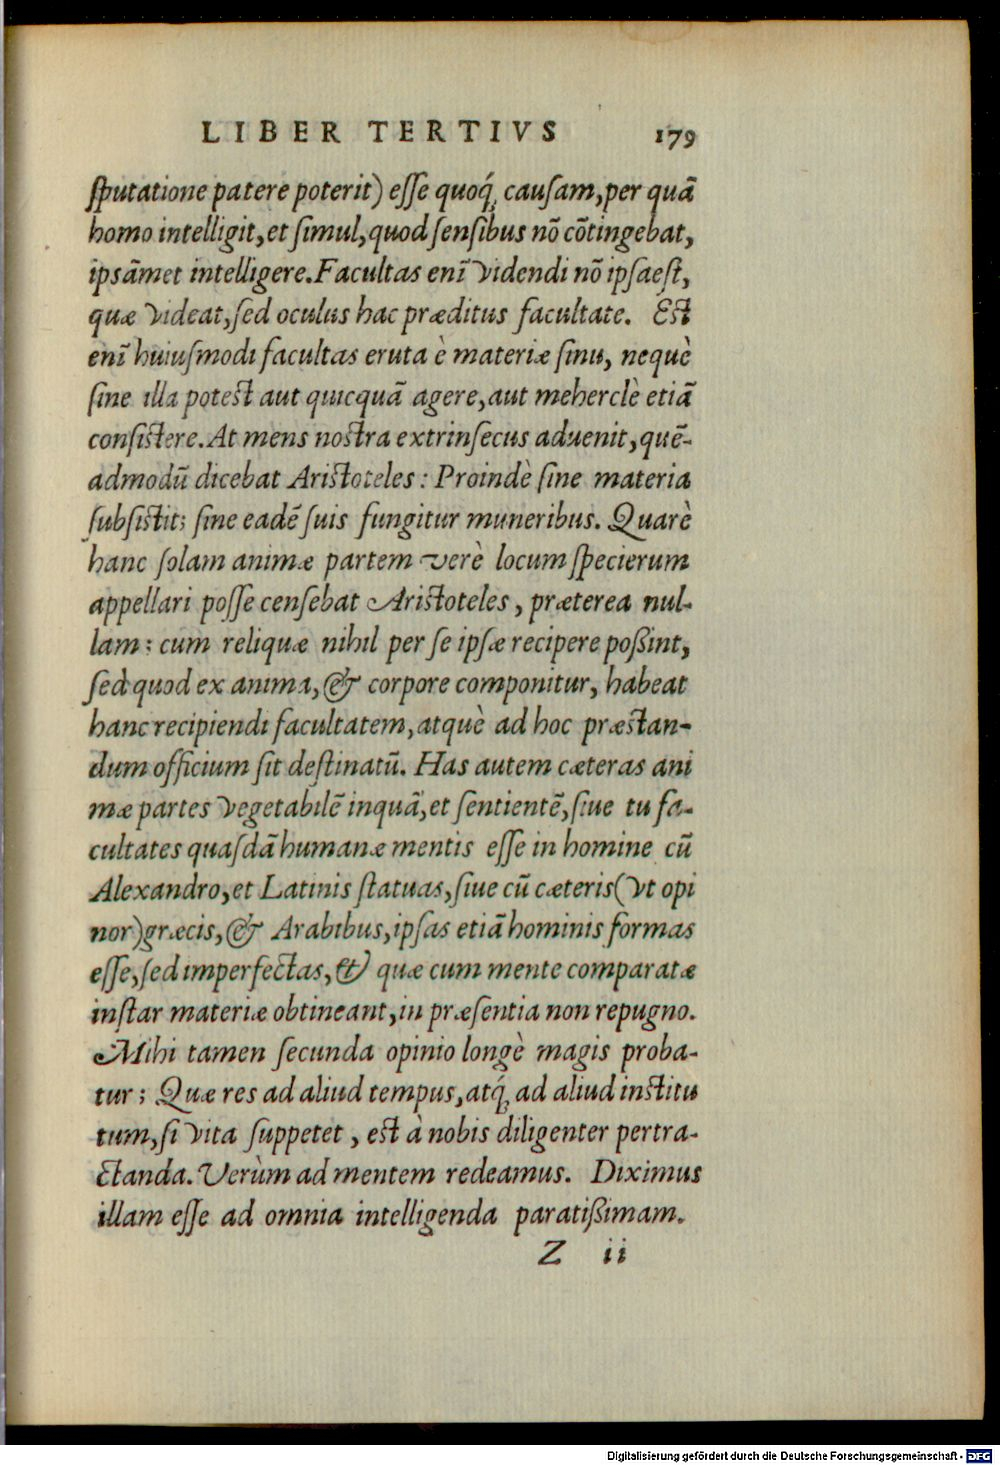 LIBER TERTIVS 179
ſputatione patere poterit) eſſe quoq́; cauſam, per quā
homo intelligit, et ſimul, quod ſenſibus nō cōtingebat,
ipsāmet intelligere. Facultas enī videndi nō ipſaeſt,
quæ videat, ſed oculus hac præditus facultate. Est
enī huiuſmodi facultas eruta è materiæ ſinu, nequè
ſine illa potest aut quicquā agere, aut meherclè etiā
conſistere. At mens nostra extrinſecus aduenit, quē-
admodū dicebat Aristoteles: Proindè ſine materia
ſubſistit; ſine eadē ſuis fungitur muneribus. Quarè
hanc ſolam animæ partem verè locum ſpecierum
appellari poſſe cenſebat Aristoteles, præterea nul-
lam: cum reliquæ nihil per ſe ipſæ recipere poßint,
ſed quod ex anima, & corpore componitur, habeat
hanc recipiendi facultatem, atquè ad hoc præstan-
dum officium ſit deſtinatū. Has autem cæteras ani
mæ partes vegetabilē inquā, et ſentientē, ſiue tu fa-
cultates quaſdā humanæ mentis eſſe in homine cū
Alexandro, et Latinis ſtatuas, ſiue cū cæteris (vt opi
nor) græcis, & Arabibus, ipſas etiā hominis formas
eſſe, ſed imperfectas, & quæ cum mente comparatæ
inſtar materiæ obtineant, in præſentia non repugno.
Mihi tamen ſecunda opinio longè magis proba-
tur; Quæ res ad aliud tempus, atq́; ad aliud inſtitu
tum, ſi vita ſuppetet, est à nobis diligenter pertra-
ctanda. Verùm ad mentem redeamus. Diximus
illam eſſe ad omnia intelligenda paratißimam.
Z ii
Digitalisierung gefördert durch die Deutsche Forschungsgemeinschaft - DFG